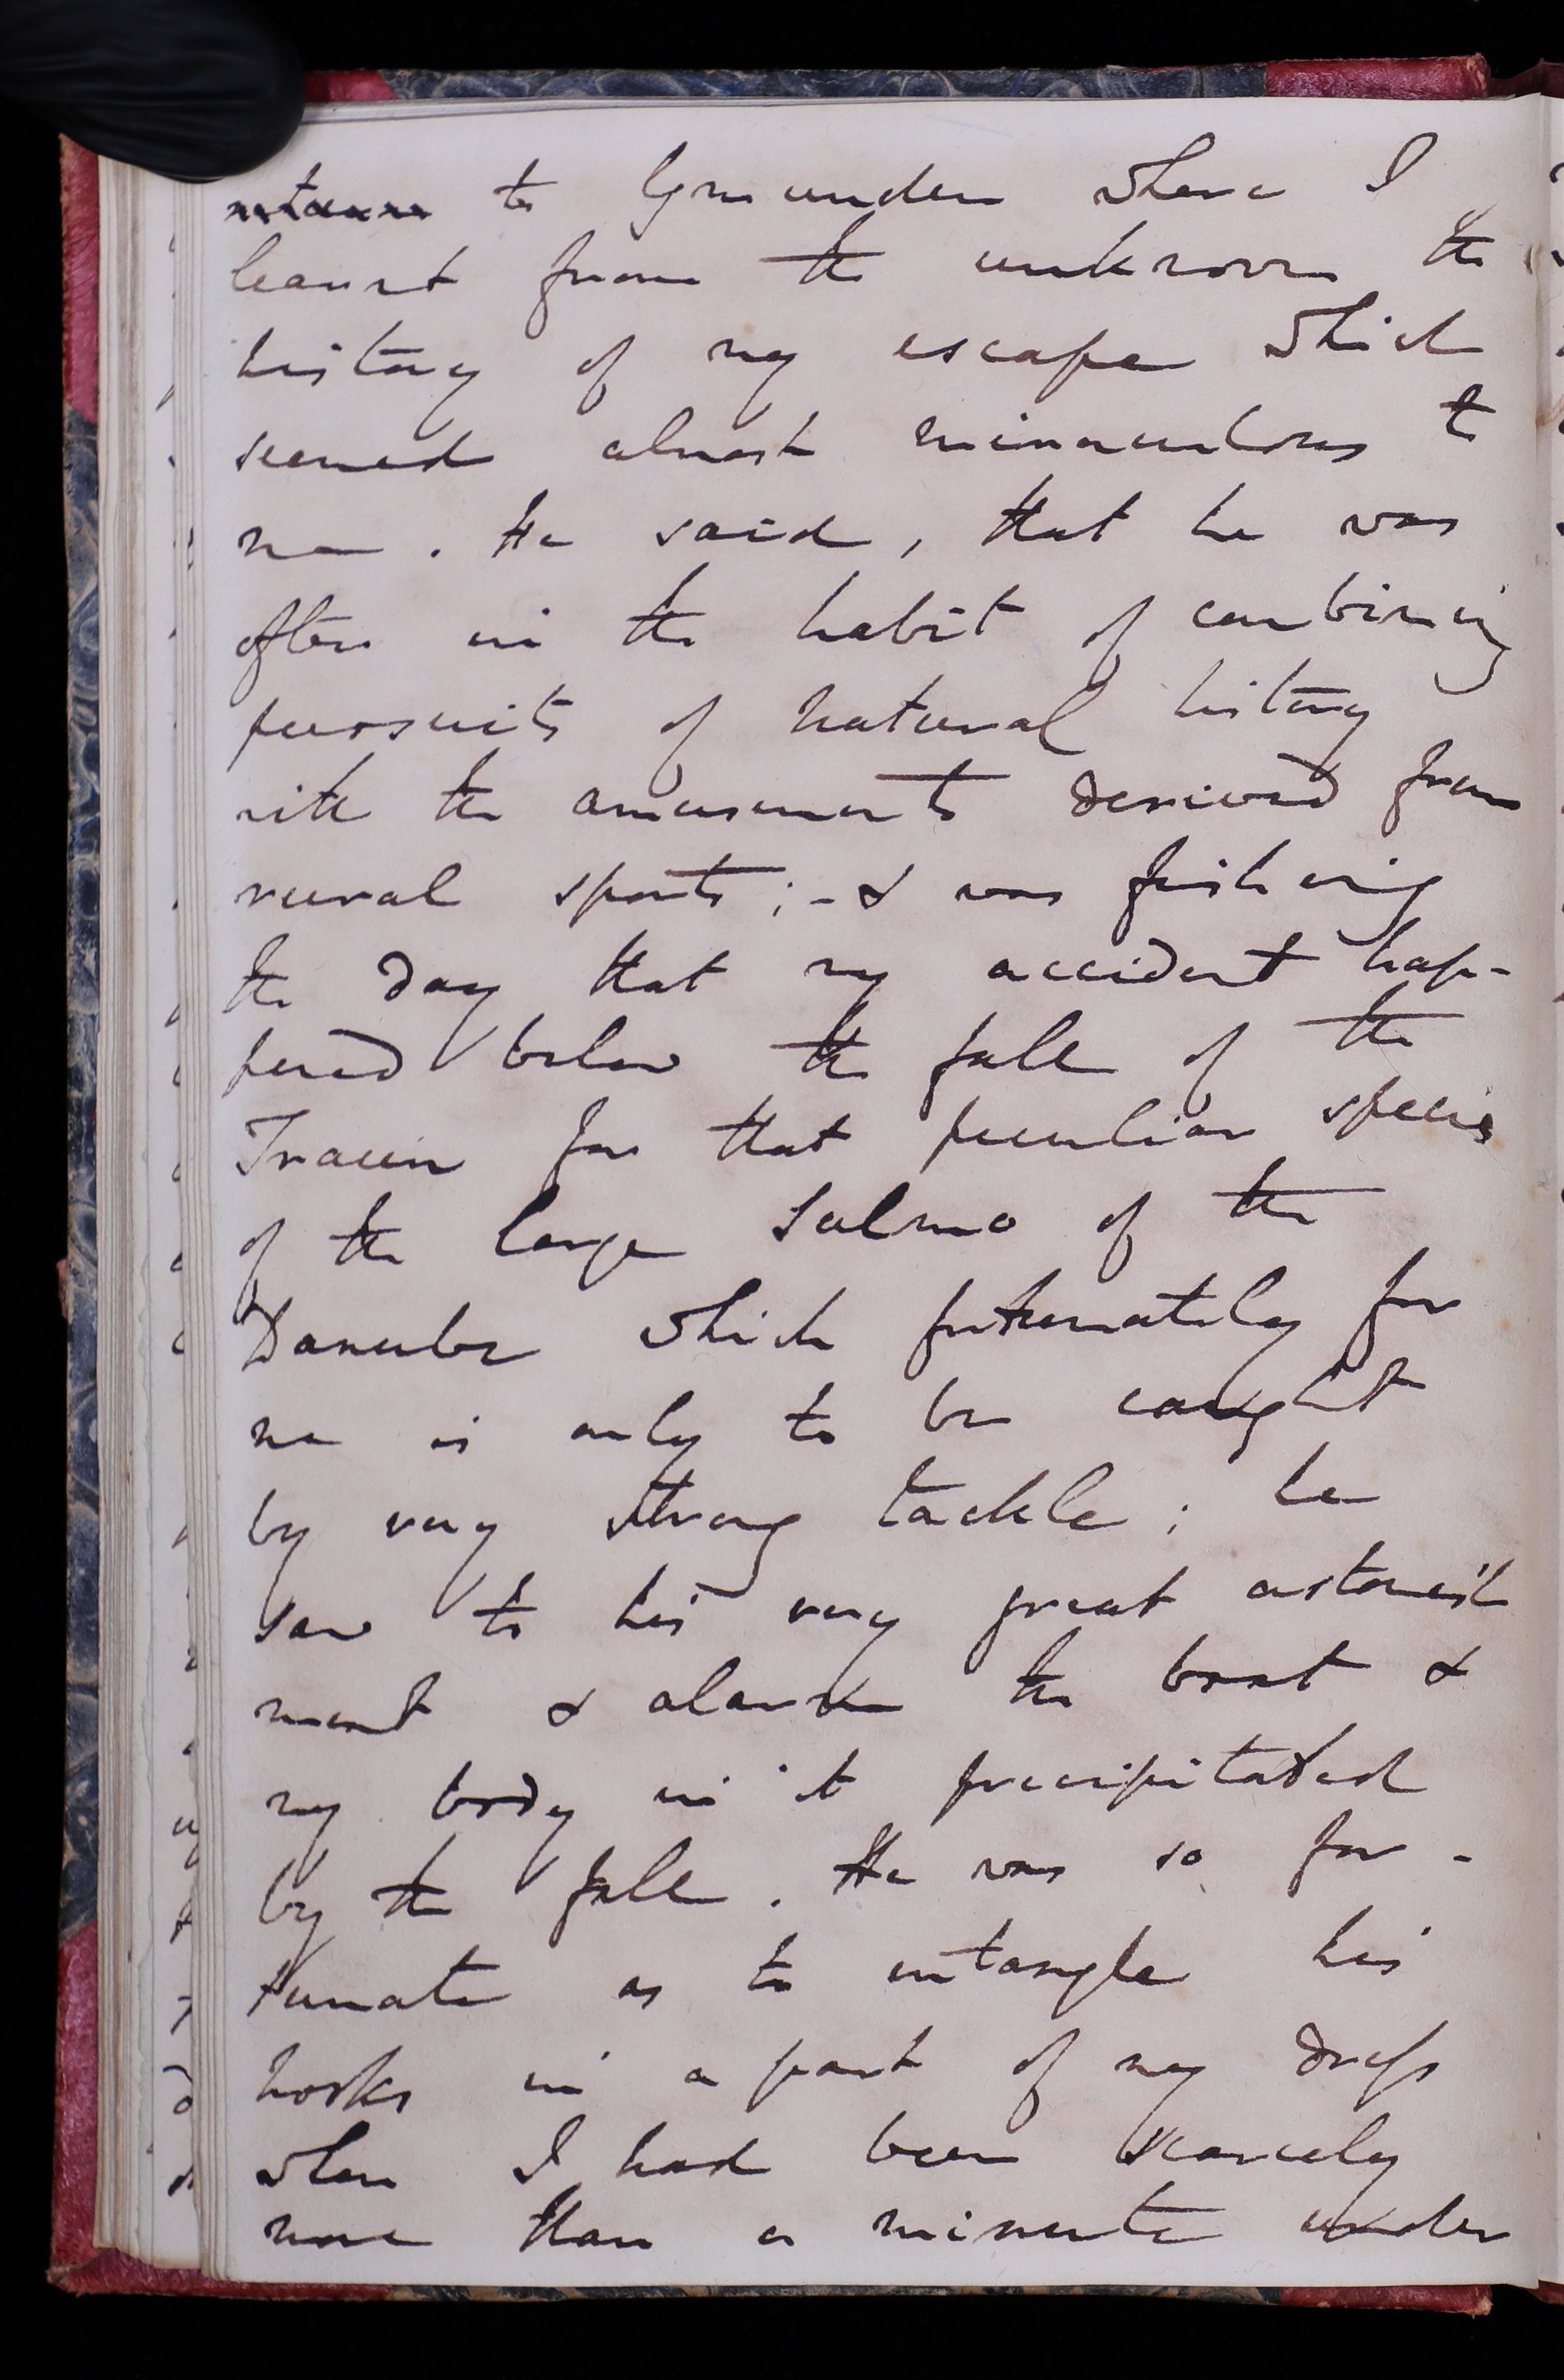 to Gmunden where I
learnt from the unknown the
history of my escape which
seemed almost miraculous to
me. He said, that he was
often in the habit of combining
pursuits of natural history
with the amusements derived from
rural sports; - & was fishing
the day that my accident hap-
pened below the fall of the
Traun for that peculiar species
of the large Salmo of the
Danube which fortunately for
me is only to be caught
by very strong tackle; he
saw to his very great astonish
ment & alarm the boat &
my body in it precipitated
by the fall. He was so for-
tunate as to entangle his
hooks in a part of my dress
when I had been scarcely
more than a minute under